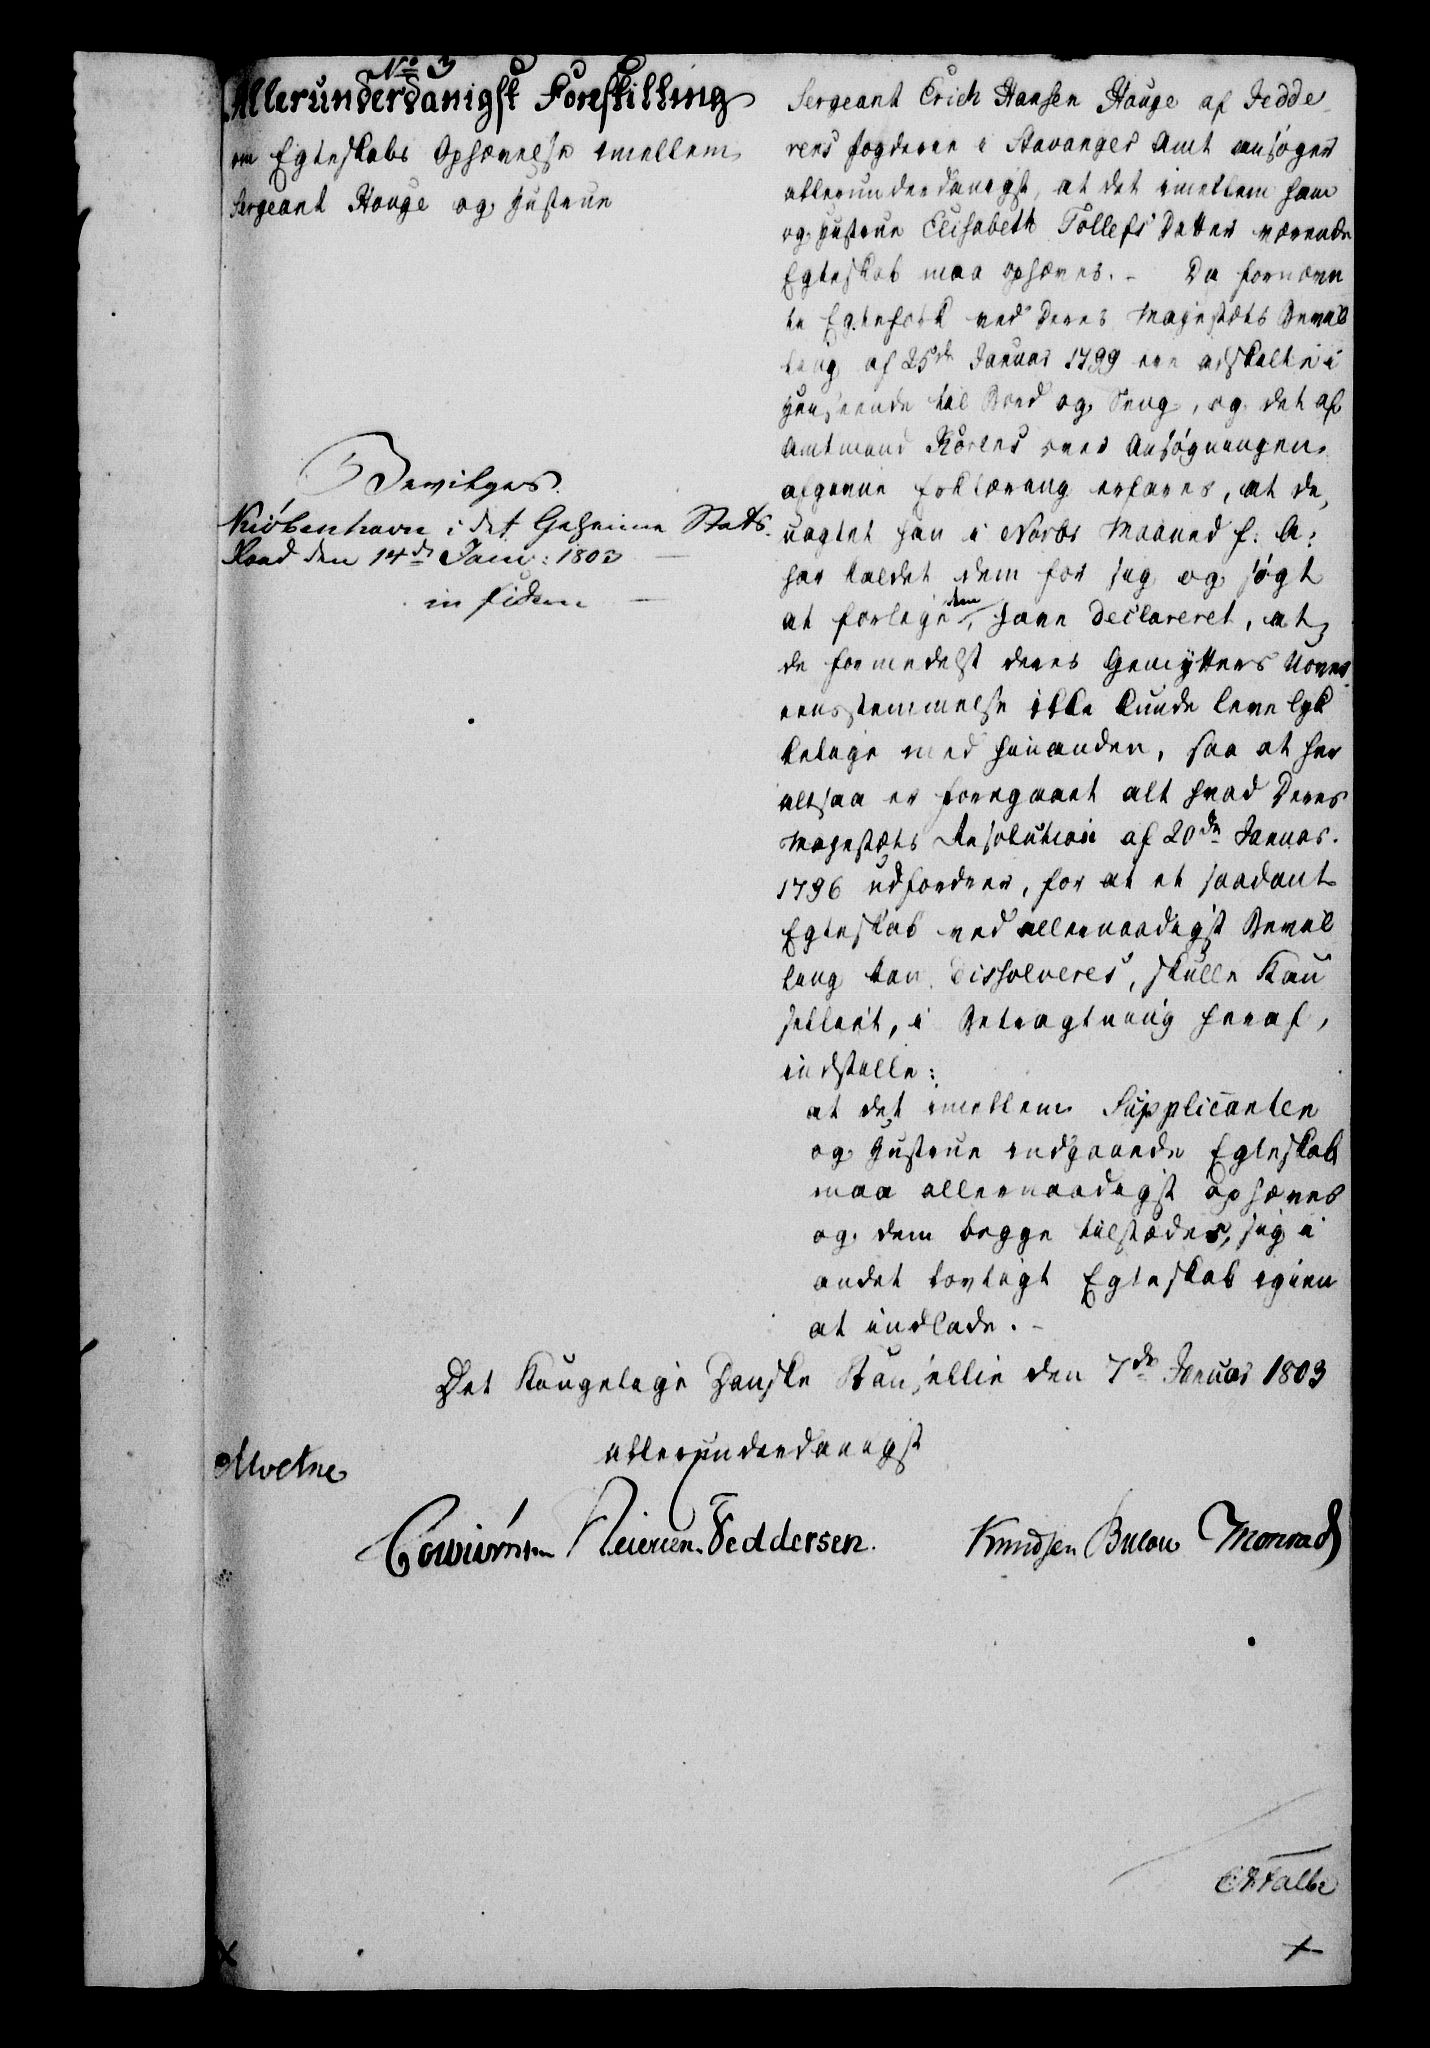 No 3
Allerunderdanigst Forestilling
om Egteskabs Ophævelse imellem
Sergeant Houge og Hustrue
Bevilges.
Kiøbenhavn i det Geheime Stats-
Raad den 14de Janv: 1803
in fidem
Sergeant Erich Hansen Houge af Jedde-
rens fogderie i Stavanger Amt ansøger
allerunderdanigst, at det imellem ham
og Hustrue Elisabeth Tollefs Datter værende
Egteskab maa ophæves. - Da fornævn
te Egtefolk ved Deres Majestæts Bevil
ling af 25de Januar 1799 ere adskilte i
Henseende til Bord og Seng, og det af
Amtmand Kørens over Ansøgningen
afgivne Erklæring erfares, at de,
uagtet han i Novbr Maaned f: A:
har kaldet dem for sig og søgt
at forlige dem, have declareret, at
de formedelst deres Gemytters Uover
eensstemmelse ikke kunde leve lyk
kelige med hinanden, saa at her
altsaa er foregaaet alt hvad Deres
Majestæts Resolution af 20de Januar.
1796 udfordrer, for at et saadant
Egteskab ved allernaadigst Bevil
ling kan dissolveres, skulle Kan
selliet, i Betragtning heraf,
indstille:
at det imellem Supplicanten
og Hustrue indgaaede Egteskab
maa allernaadigst ophæves
og dem begge tilstædes, sig i
andet lovligt Egteskab igien
at indlade. -
Det Kongelige Danske Kansellie den 7de Januar 1803
allerunderdanigst
Moltke
Cowiørnsen Reiersen. Feddersen. Knudsen Bulow Monrad